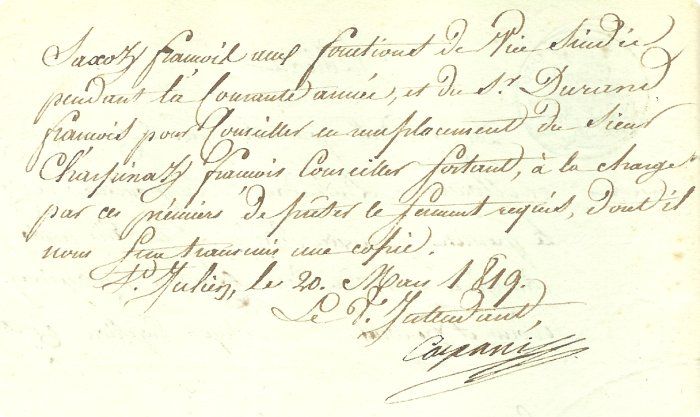 Saxod françois aux fonctions de Vice Sindic
pendant la Courante année, et du Sr. Durand
françois pour Conseiller en remplacement du Sieur
françois Conseiller sortant, à la charge
par ces prémiers de prêter le serment requis, dont il
nous sera transmis une copie.
St. Julien, le 20. Mars 1819.
Le Intendant,